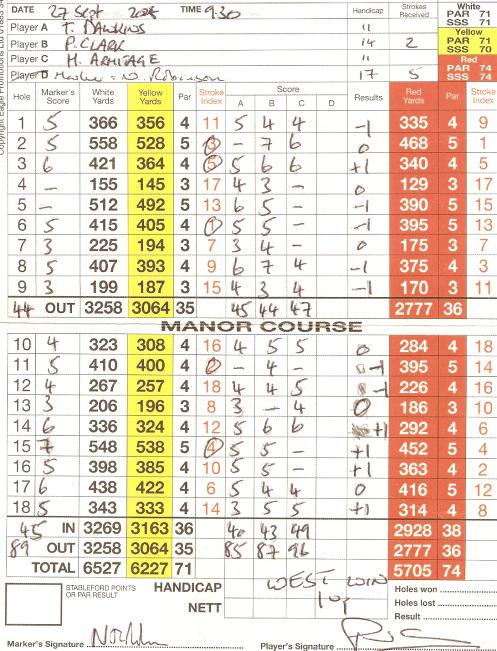 DATE 27 Sept TIME 9.30 Handicap Strokes Received White PAR 71 SSS 71
Player A T. DAWKINS 11 Yellow PAR 71 SSS 70
Player B P. CLARK 14 2
Player C H. ARMITAGE 11 Red PAR 74 SSS 74
Player D Marker - N. Robinson 17 5
Hole Marker's Score White Yards Yellow Yards Par Stroke Index Score A B C D Results Red Yards Par Stroke Index
1 5 366 356 4 11 5 4 4 -1 335 4 9
2 5 558 528 5 3 - 7 6 0 468 5 1
3 6 421 364 4 5 5 6 6 +1 340 4 5
4 - 155 145 3 17 4 3 - 0 129 3 17
5 - 512 492 5 13 6 5 - -1 390 5 15
6 5 415 405 4 1 5 5 - -1 395 5 13
7 3 225 194 3 7 3 4 - 0 175 3 7
8 5 407 393 4 9 6 7 4 -1 375 4 3
9 3 199 187 3 15 4 3 4 -1 170 3 11
44 OUT 3258 3064 35 45 44 47 2777 36
MANOR COURSE
10 4 323 308 4 16 4 5 5 0 284 4 18
11 5 410 400 4 2 - 4 - -1 395 5 14
12 4 267 257 4 18 4 4 5 -1 226 4 16
13 3 206 196 3 8 3 - 4 0 186 3 10
14 6 336 324 4 12 5 6 6 +1 292 4 6
15 7 548 538 5 4 5 5 - +1 452 5 4
16 5 398 385 4 10 5 5 - +1 363 4 2
17 6 438 422 4 6 5 4 4 0 416 5 12
18 5 343 333 4 14 3 5 5 +1 314 4 8
45 IN 3269 3163 36 40 43 49 2928 38
89 OUT 3258 3064 35 85 87 96 2777 36
TOTAL 6527 6227 71 5705 74
STABLEFORD POINTS OR PAR RESULT HANDICAP WEST WIN Holes won
NETT Holes lost
Result
Marker's Signature Player's Signature